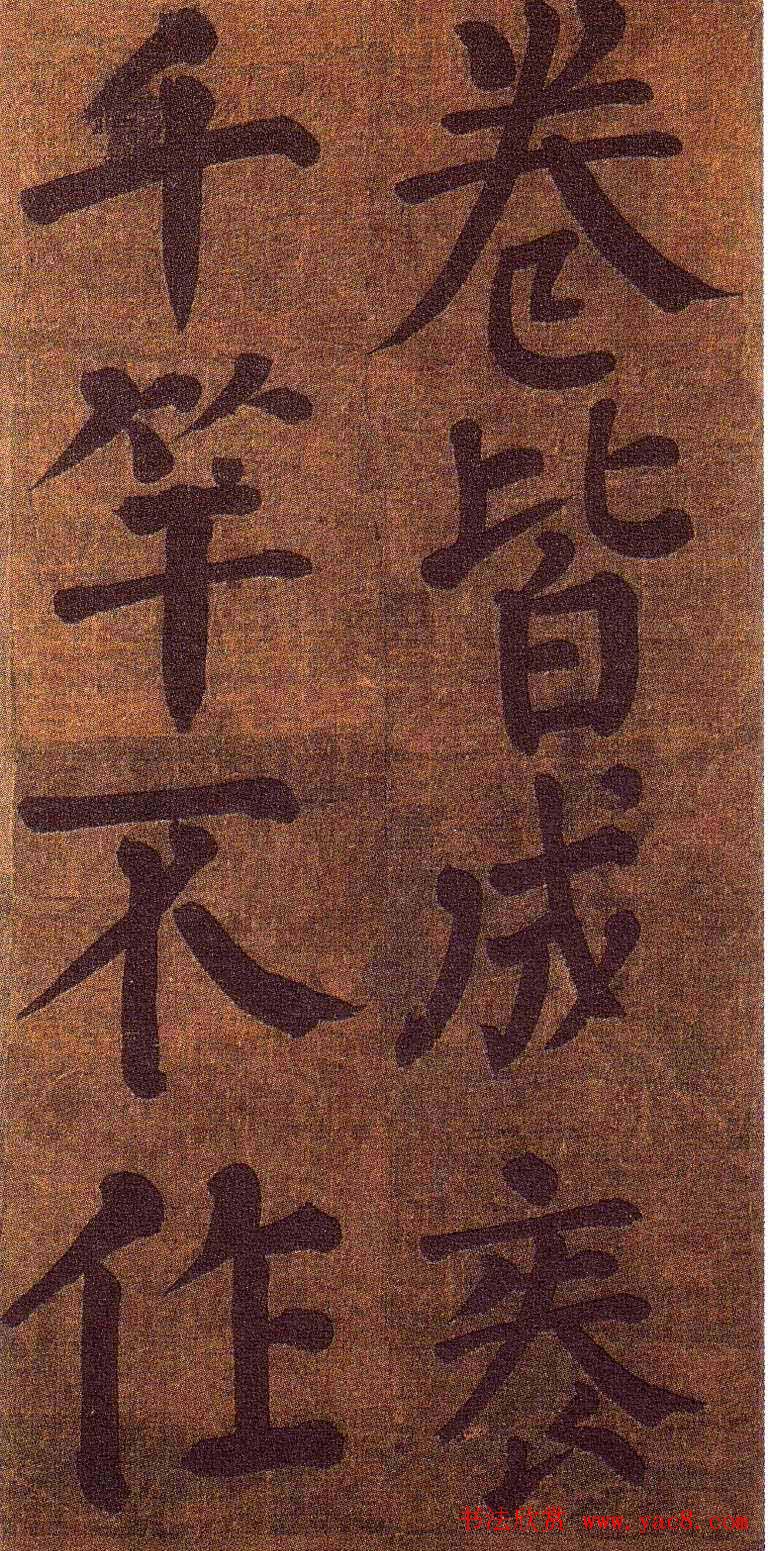 卷皆成
千竿不作
书法欣赏 www.yac8.com